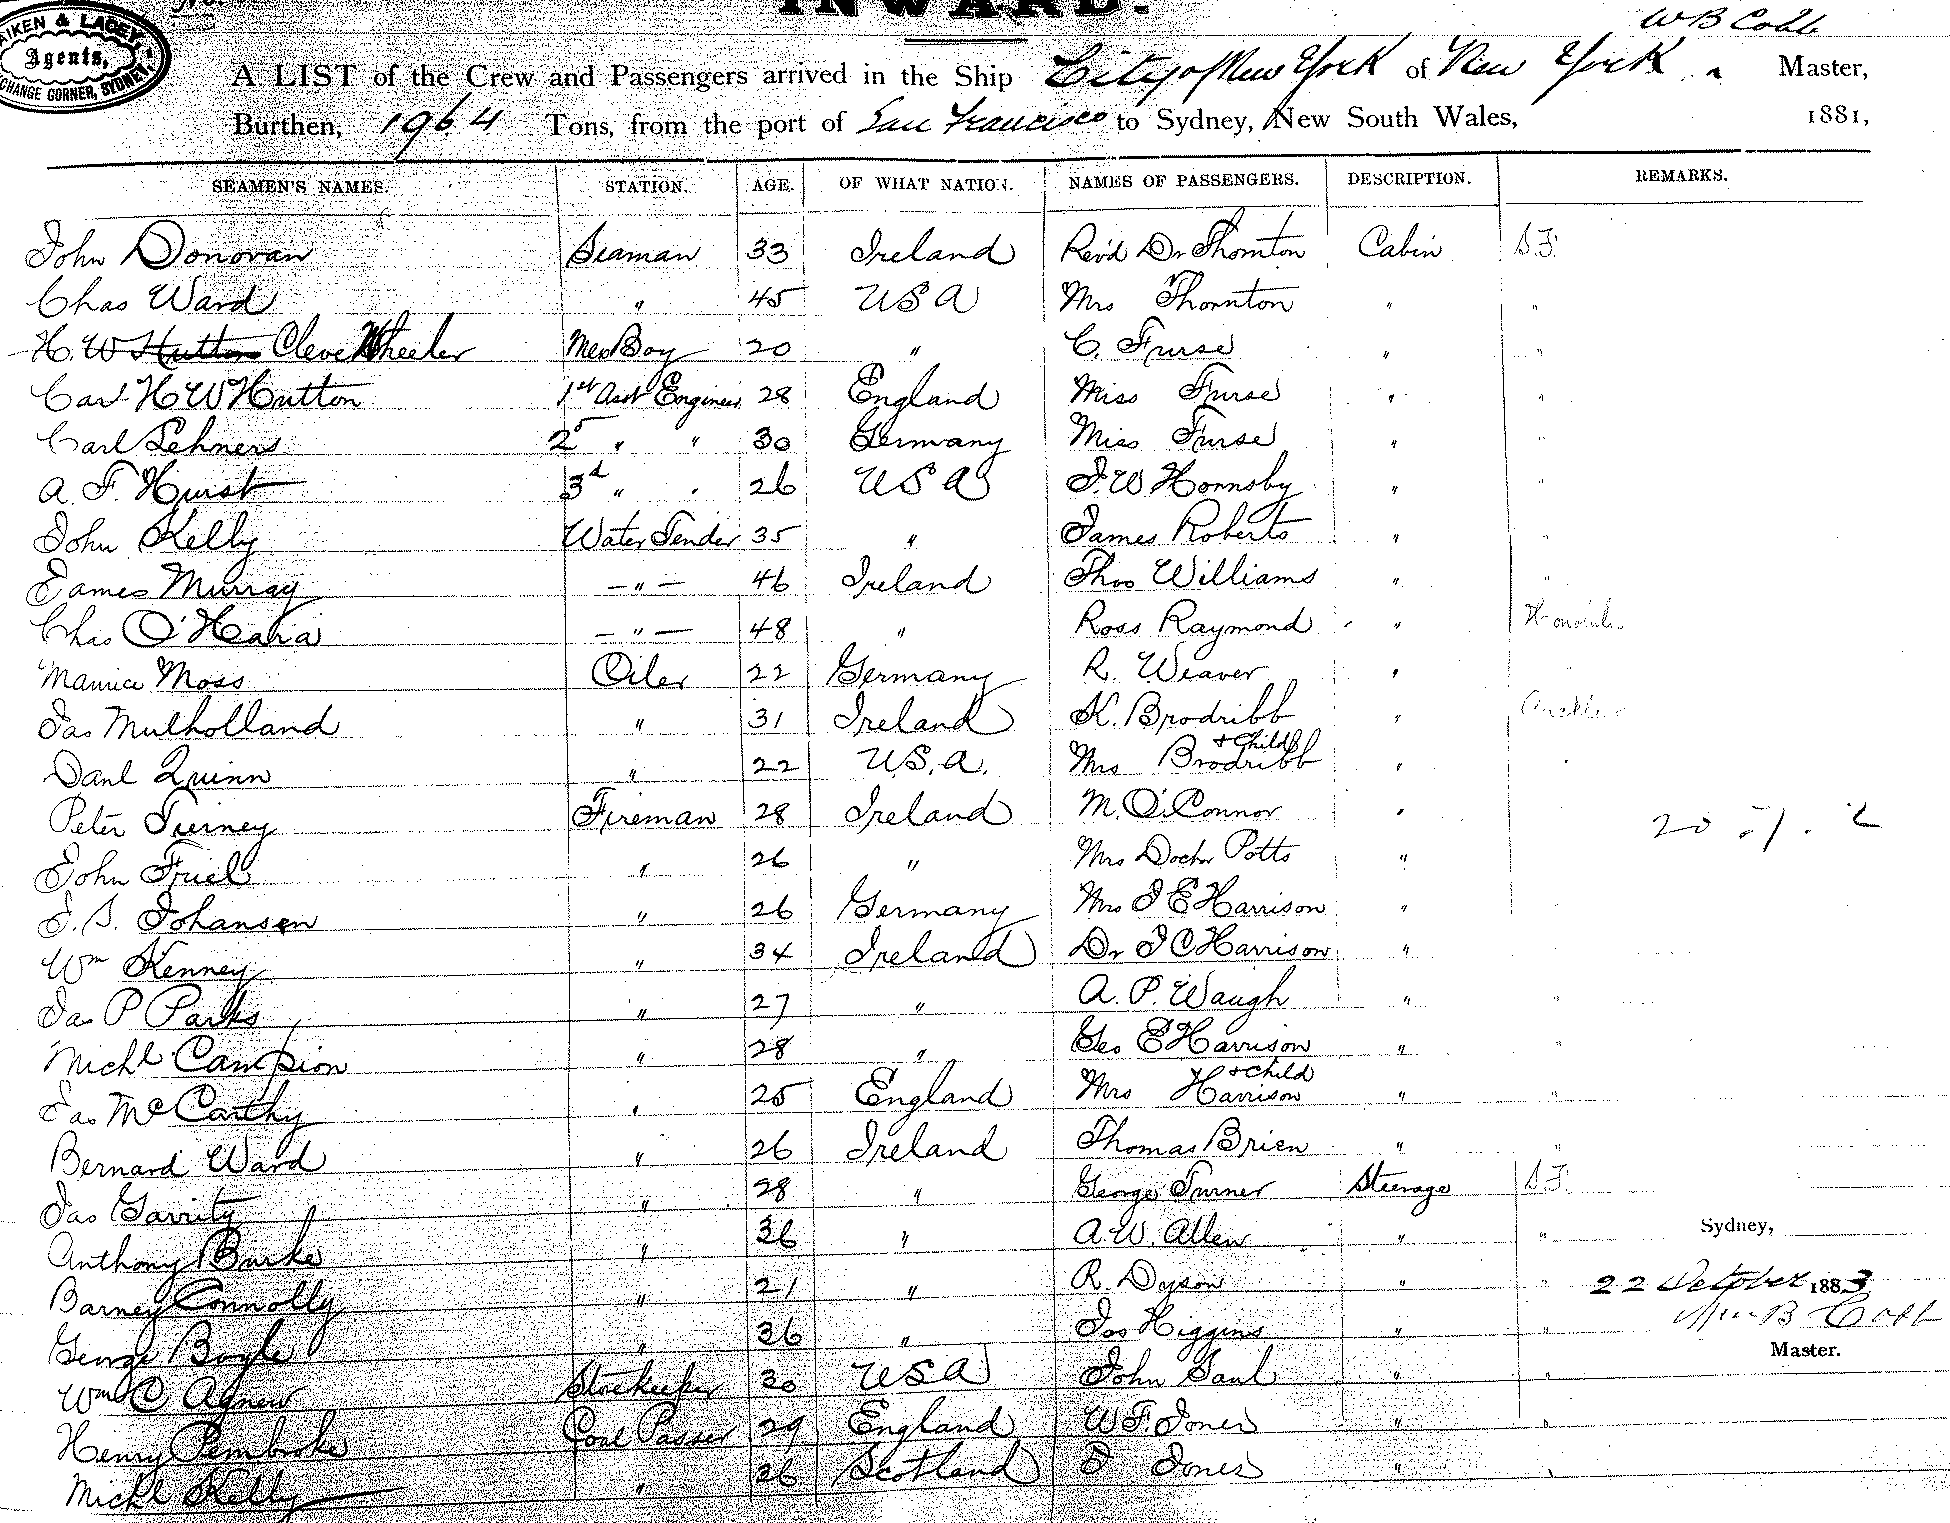 No.
INWARD.
AIKEN & LACEY
Agents,
CHANGE CORNER, SYDNEY
W B Cobb
A LIST of the Crew and Passengers arrived in the Ship City of New York of New York, Master,
Burthen, 1964 Tons, from the port of San Francisco to Sydney, New South Wales, 1881,
SEAMEN'S NAMES. STATION. AGE. OF WHAT NATION. NAMES OF PASSENGERS. DESCRIPTION. REMARKS.
John Donovan Seaman 33 Ireland Rev'd Dr Thornton Cabin S.F.
Chas Ward " 45 USA Mrs Thornton " "
H. W Hutton Cleve Wheeler Mess Boy 20 " C. Furse " "
Carl H W Hutton 1st Asst Engineer 28 England Miss Furse " "
Carl Lehners 2 " " 30 Germany Miss Furse " "
A. F. Hurst 3d " " 26 USA J. W Hornsby " "
John Kelly Water Tender 35 " James Roberts " "
James Murray — " — 46 Ireland Thos Williams " "
Chas O'Hara — " — 48 " Ross Raymond " Honolulu
Maurice Moss Oiler 22 Germany R. Weaver "
Jas Mulholland " 31 Ireland K. Brodribb " Auckland
Danl Quinn " 22 U.S.A. Mrs Brodribb & Child "
Peter Tierney Fireman 28 Ireland M. O'Connor "
John Friel " 26 " Mrs Doctr Potts "
J. S. Johansen " 26 Germany Mrs J E Harrison "
Wm Kenney " 34 Ireland Dr J C Harrison "
Jas P Parks " 27 " A. P. Waugh " "
Michl Campion " 28 " Geo E Harrison " "
Jas McCarthy " 25 England Mrs Harrison & Child " "
Bernard Ward " 26 Ireland Thomas Brien " "
Jas Garrity " 28 " George Turner Steerage S.F.
Anthony Burke " 36 " A. W. Allen " "
Barney Connolly " 21 " R. Dyson " "
George Boyle " 36 " Jos Higgins " "
Wm C Agnew Storekeeper 30 USA John Gaul " "
Henry Pembroke Coal Passer 29 England W. F. Jones " "
Michl Kelly " 26 Scotland J Jones " "
Sydney,
22 October 1883
Wm B Cobb
Master.